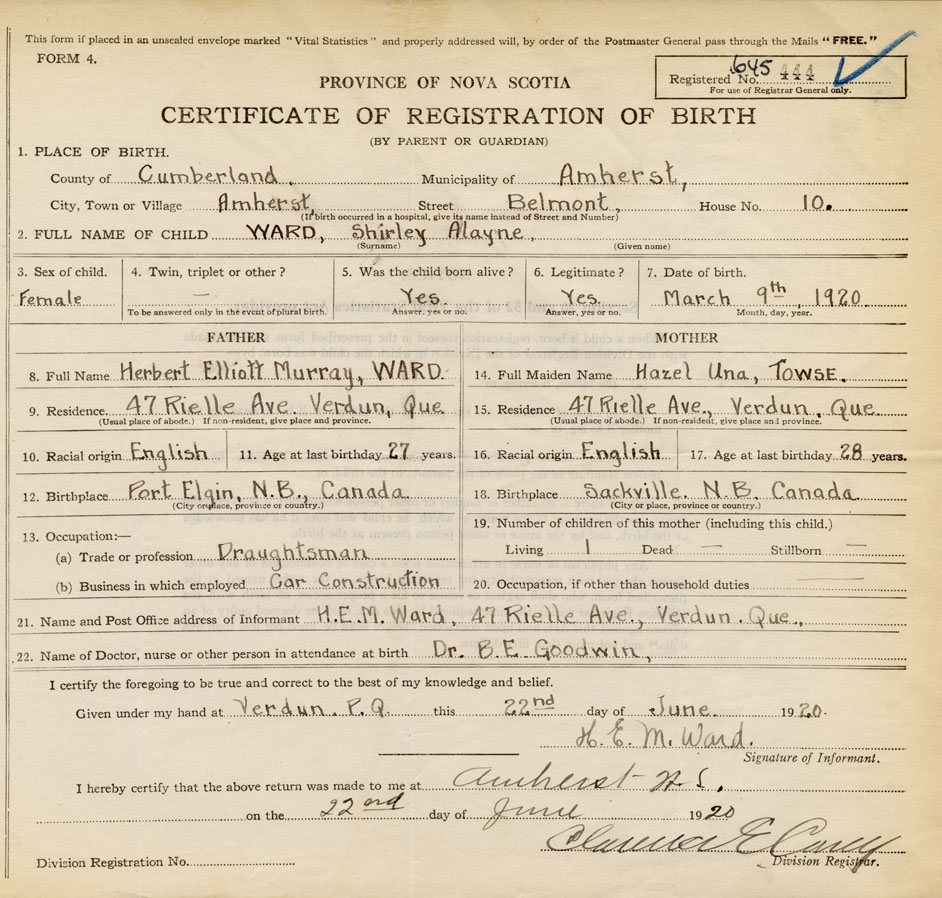 This form if placed in an unsealed envelope marked "Vital Statistics" and properly addressed will, by order of the Postmaster General pass through the Mails "FREE."
FORM 4.
645 444
Registered No.
For use of Registrar General only.
PROVINCE OF NOVA SCOTIA
CERTIFICATE OF REGISTRATION OF BIRTH
(BY PARENT OR GUARDIAN)
1. PLACE OF BIRTH.
County of Cumberland. Municipality of Amherst,
City, Town or Village Amherst, Street Belmont, House No. 10.
(If birth occurred in a hospital, give its name instead of Street and Number)
2. FULL NAME OF CHILD WARD, Shirley Alayne,
(Surname) (Given name)
3. Sex of child. 4. Twin, triplet or other? 5. Was the child born alive? 6. Legitimate? 7. Date of birth.
Female — Yes. Yes. March 9th, 1920
To be answered only in the event of plural birth. Answer, yes or no. Answer, yes or no. Month, day, year.
FATHER MOTHER
8. Full Name Herbert Elliott Murray, WARD. 14. Full Maiden Name Hazel Una, TOWSE.
9. Residence 47 Rielle Ave. Verdun, Que 15. Residence 47 Rielle Ave., Verdun. Que
(Usual place of abode.) If non-resident, give place and province. (Usual place of abode.) If non-resident, give place and province.
10. Racial origin English 11. Age at last birthday 27 years. 16. Racial origin English 17. Age at last birthday 28 years.
12. Birthplace Port Elgin, N.B., Canada 18. Birthplace Sackville. N.B. Canada
(City or place, province or country.) (City or place, province or country.)
13. Occupation:— 19. Number of children of this mother (including this child.)
(a) Trade or profession Draughtsman Living 1 Dead — Stillborn —
(b) Business in which employed Car Construction 20. Occupation, if other than household duties
21. Name and Post Office address of Informant H.E.M. Ward, 47 Rielle Ave., Verdun. Que.,
22. Name of Doctor, nurse or other person in attendance at birth Dr. B.E. Goodwin,
I certify the foregoing to be true and correct to the best of my knowledge and belief.
Given under my hand at Verdun. P.Q. this 22nd day of June 1920.
H. E. M. Ward.
Signature of Informant.
I hereby certify that the above return was made to me at Amherst N.S.
on the 22nd day of June 1920
Clarence E Casey
Division Registration No. Division Registrar.